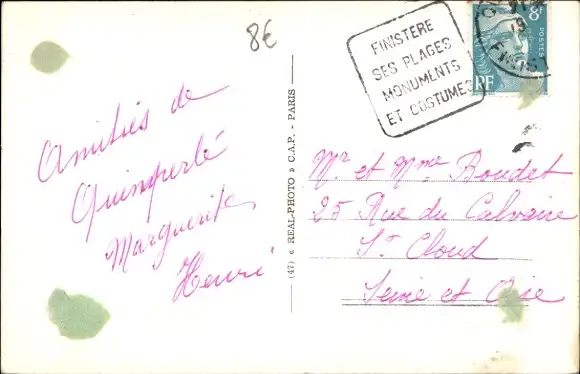 8€
FINISTERE
SES PLAGES
MONUMENTS
ET COSTUMES
8F
POSTES
RF
FINIST
Amitiés de
Quimperlé
Marguerite
Henri
(47) « REAL-PHOTO » C.A.P. - PARIS
Mr et Mme Boudet
25 Rue du Calvaire
St Cloud
Seine et Oise